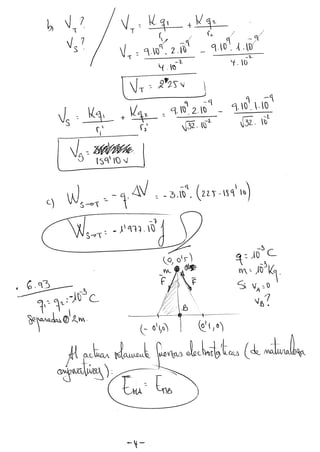 b) V_T ? / V_T = K q₁/r₁ + K q₂/r₂
V_S ? V_T = 9·10⁹·2·10⁻⁹/4·10⁻² - 9·10⁹·1·10⁻⁹/4·10⁻²
V_T = 2'25 V
V_S = K q₁/r₁' + K q₂/r₂' = 9·10⁹·2·10⁻⁹/√32·10⁻² - 9·10⁹·1·10⁻⁹/√32·10⁻²
V_S = 159'10 V
c) W_S→T = - q·ΔV = - 3·10⁻⁹·(225-159'10)
W_S→T = - 1'977·10⁻⁷ J
• 6.93
q₁ = q₂ = -10⁻³ C
separadas 0'2m.
(0, 0'5)
m
F F
B
(-0'1,0) (0'1,0)
q = 10⁻³ C
m = 10⁻³ Kg.
Si V_A = 0
V_B ?
Al actuar solamente fuerzas electrostáticas (de naturaleza
conservativas):
E_MA = E_MB
-4-